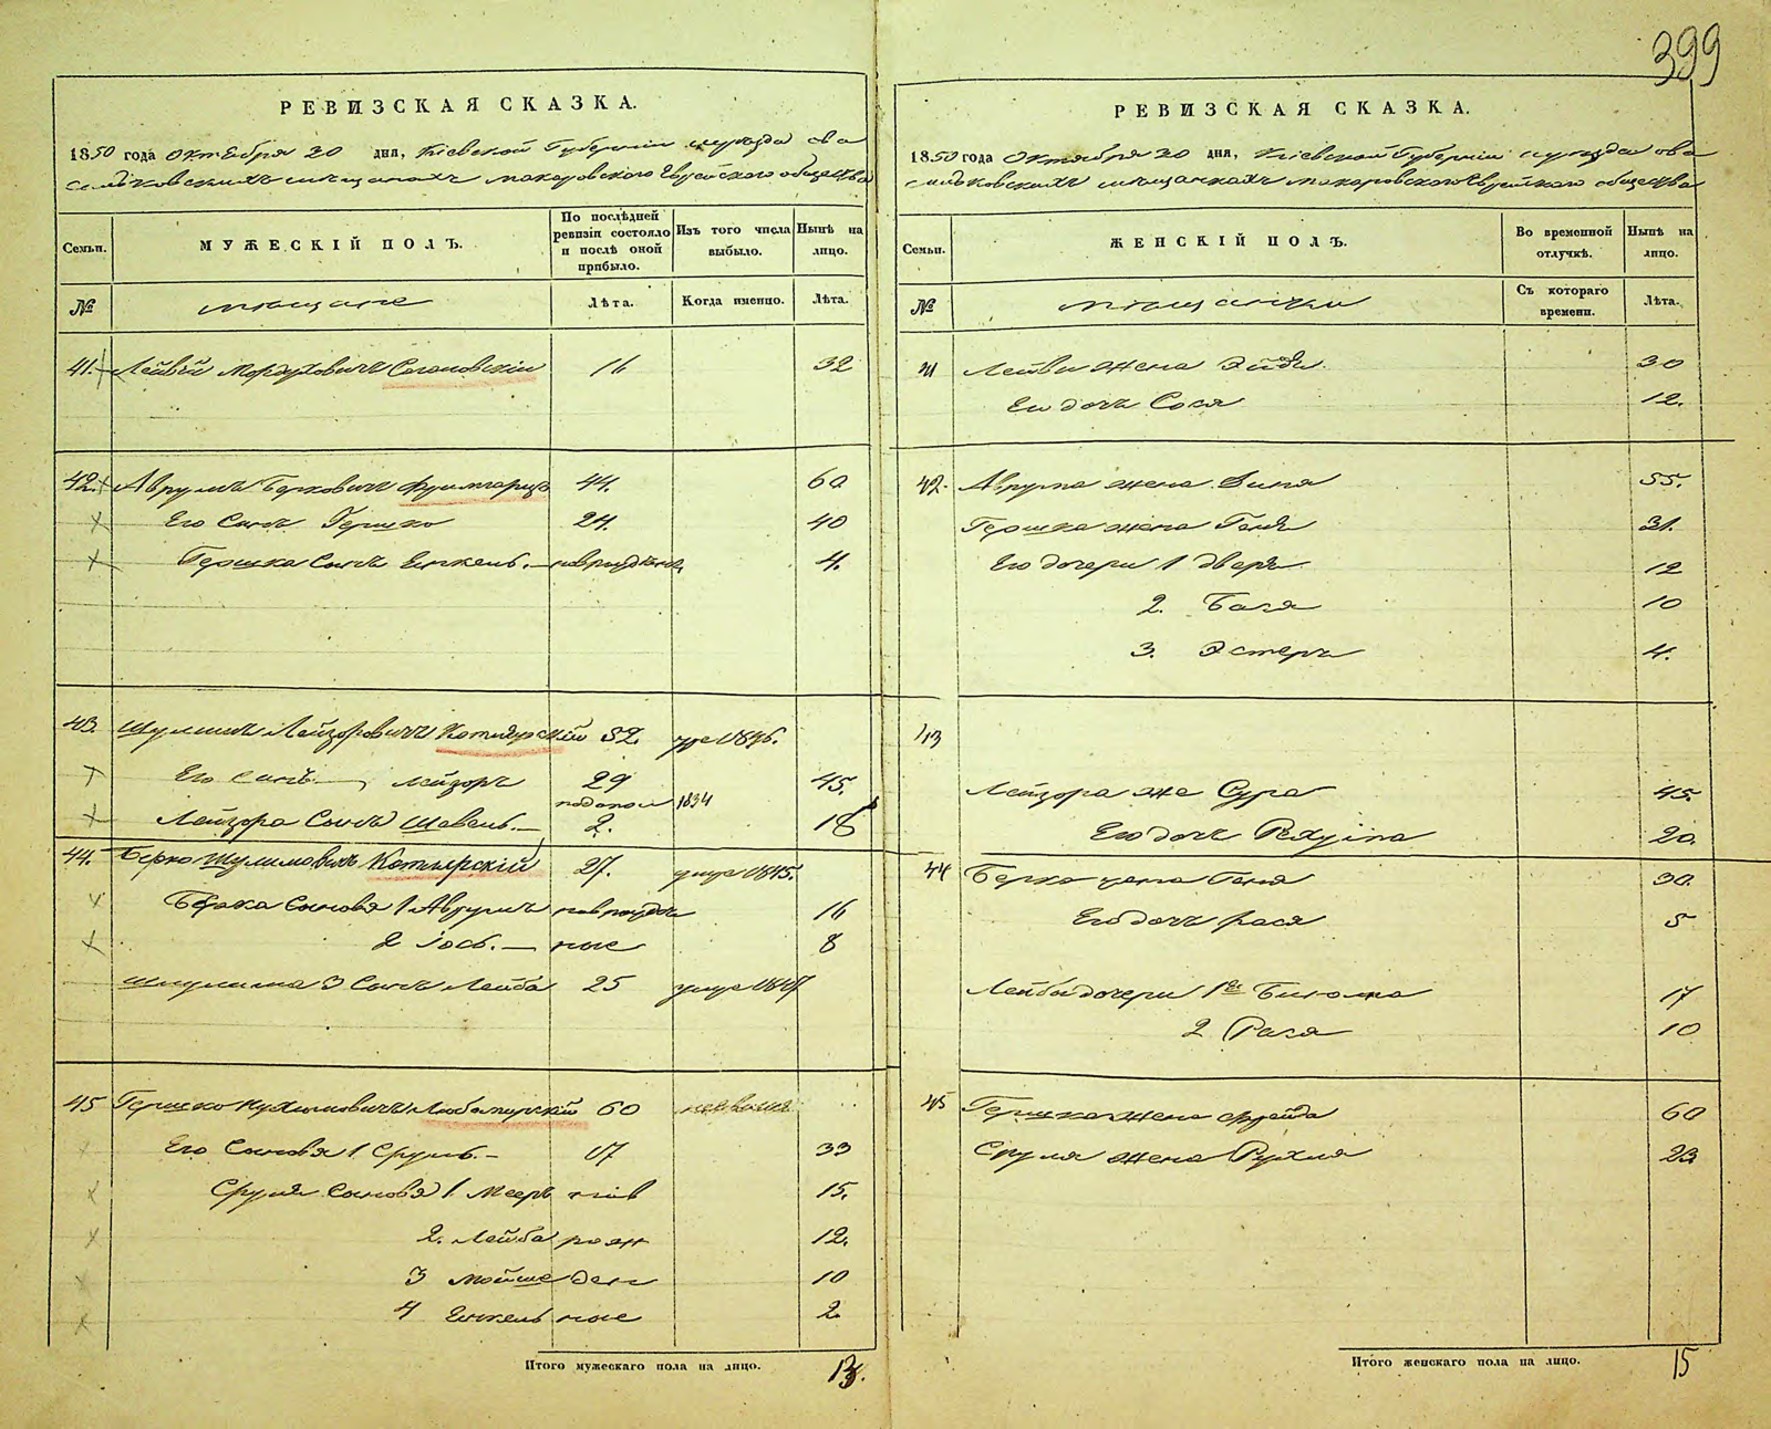 399
РЕВИЗСКАЯ СКАЗКА.
1850 года Октября 20 дня, Кіевской Губерніи
мѣщанахъ макаровского Еврейского общества
Семьи.
МУЖЕСКІЙ ПОЛЪ.
По послѣдней ревизіи состояло и послѣ оной прибыло.
Изъ того числа выбыло.
Нынѣ на лицо.
№
мѣщане
Лѣта.
Когда именно.
Лѣта.
41. Лейвій Мордуховичъ Сагановскій 16 32
42. Аврумъ Берковичъ 44. 60
Его Сынъ Гершко 24. 40
Гершка Сынъ Енкель. новрожденъ. 4.
43. Шулимъ Лейзоровичъ Котлярскій 32. 1836.
Его сынъ Лейзоръ 29 45.
1834
Лейзора Сынъ Шавель. 2. 18
44. Берко Шулимовичъ Котлярскій 27. умре 1845.
Берка Сыновя 1 Аврумъ новрожде 16
2 Іось. ные 8
Шулима 3 Сынъ Лейба 25 умре 1847
45 Гершко Нухимовичъ Любамирскій 60
Его Сыновя 1 Сруль. 17 33
Сруля Сыновя 1. Мееръ нов 15.
2. Лейба рож 12.
3 Мойше ден 10
4 Енкель ные 2.
Итого мужескаго пола на лицо. 13.
РЕВИЗСКАЯ СКАЗКА.
1850 года Октября 20 дня, Кіевской Губерніи
мѣщанкахъ макаровского Еврейского общества
Семьи.
ЖЕНСКІЙ ПОЛЪ.
Во временной отлучкѣ.
Нынѣ на лицо.
№
мѣщанки
Съ котораго времени.
Лѣта.
41 Лейви жена Эйдя. 30
Ею дочь Сося 12.
42. Аврума жена Диня 55.
Гершка жена Геня 31.
Его дочери 1 Двера 12
2. Бася 10
3. Эстеръ 4.
43
Лейзора же Сура 45.
Его дочь 20.
44 Берка жена Геня 30.
Его дочь Рася 5
Лейби дочери 1я 17
2 Рася 10
45 Гершка жена Фрейда 60
Сруля жена Рухля 23
Итого женскаго пола на лицо. 15